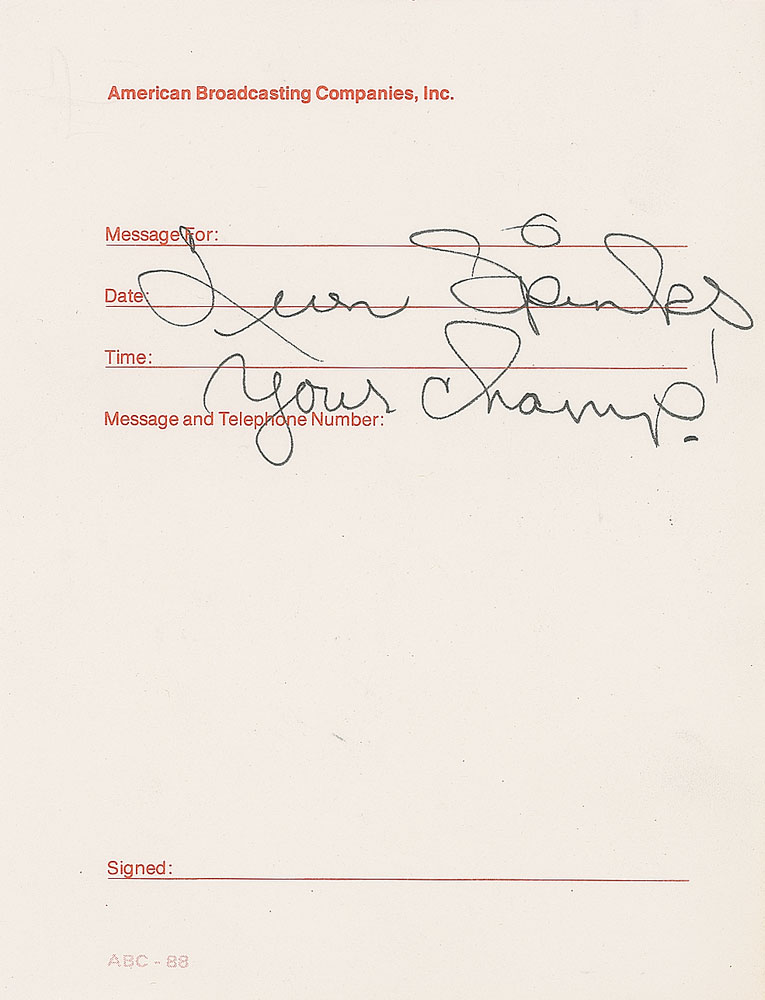 American Broadcasting Companies, Inc.
Message For:
Date:
Leon Spinks
Time:
Your Champ!
Message and Telephone Number:
Signed:
ABC - 88